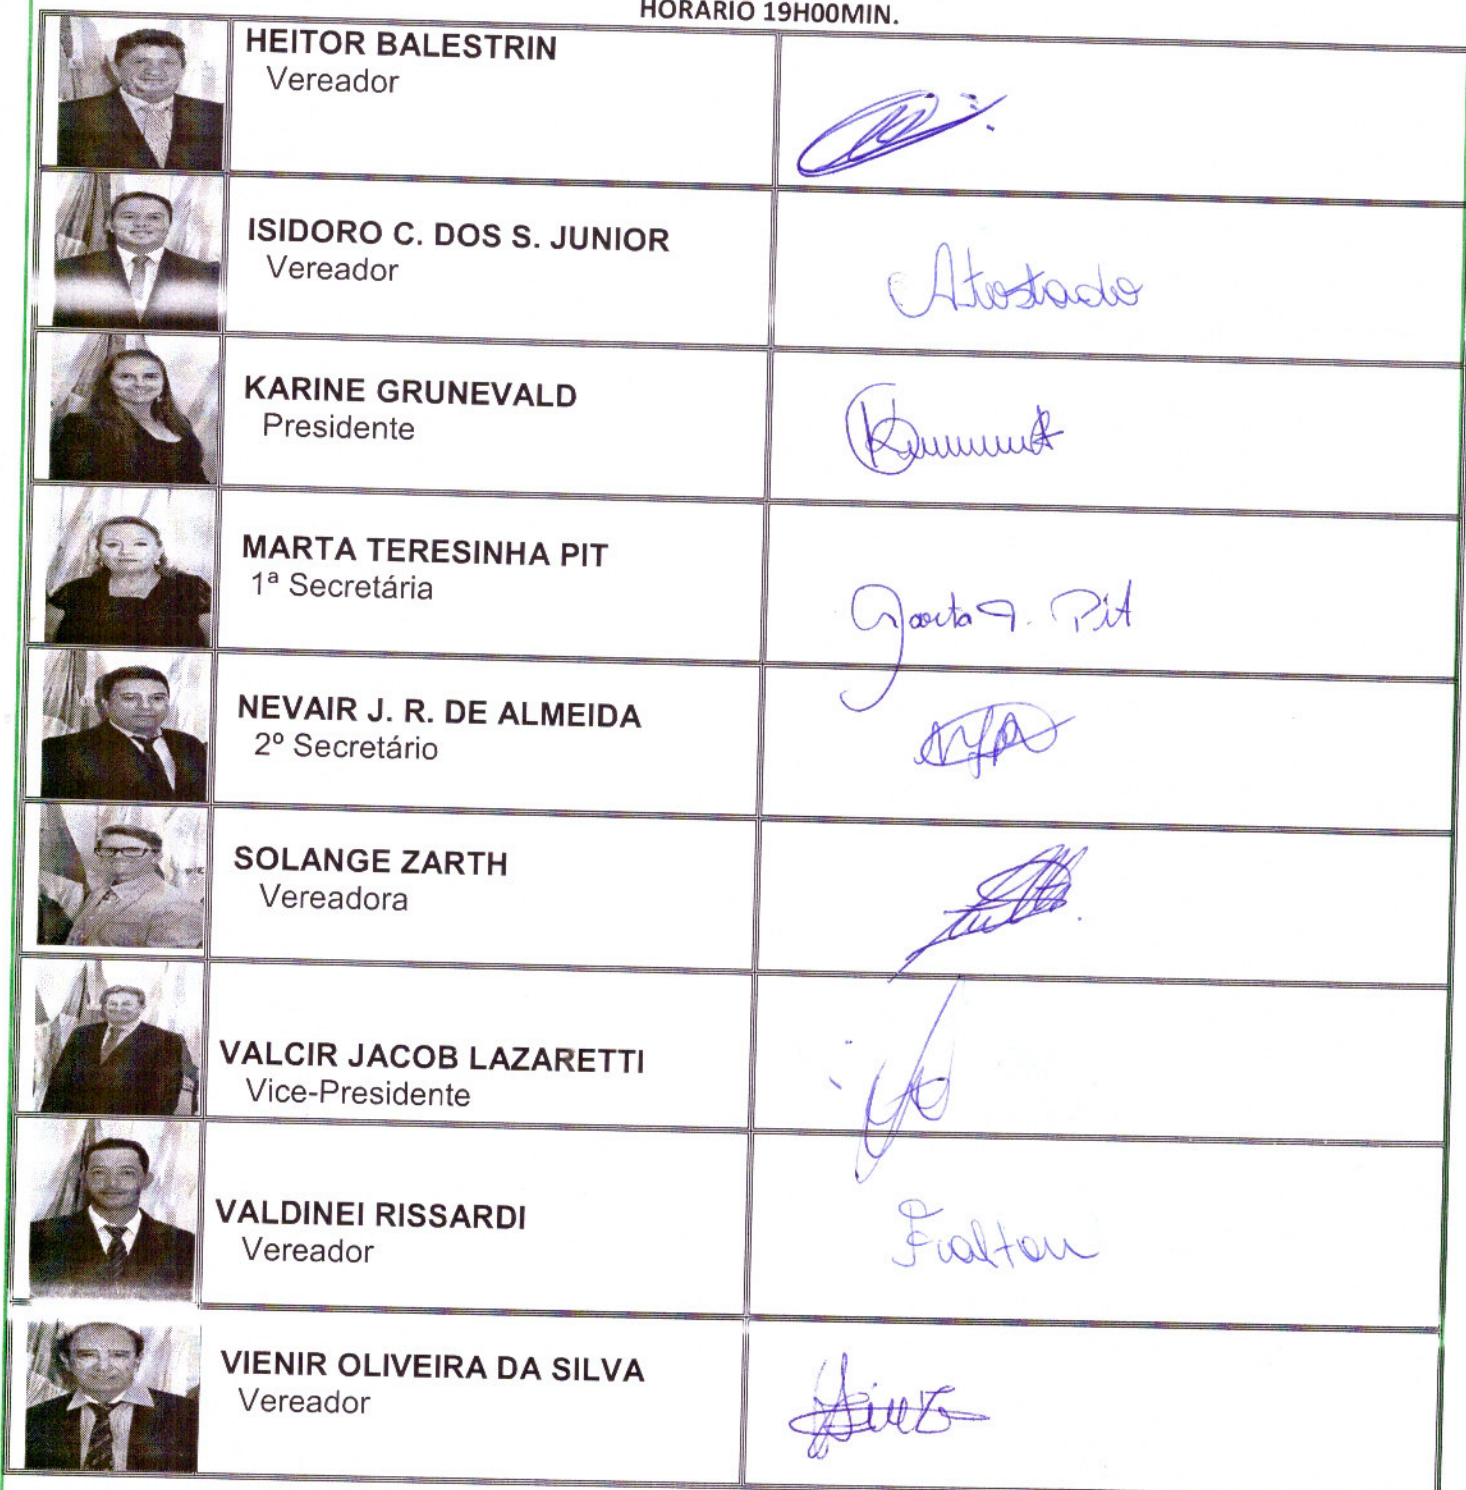 HORÁRIO 19H00MIN.
HEITOR BALESTRIN
Vereador
ISIDORO C. DOS S. JUNIOR
Vereador
Atestado
KARINE GRUNEVALD
Presidente
MARTA TERESINHA PIT
1ª Secretária
Marta T. Pit
NEVAIR J. R. DE ALMEIDA
2º Secretário
SOLANGE ZARTH
Vereadora
VALCIR JACOB LAZARETTI
Vice-Presidente
VALDINEI RISSARDI
Vereador
Faltou
VIENIR OLIVEIRA DA SILVA
Vereador